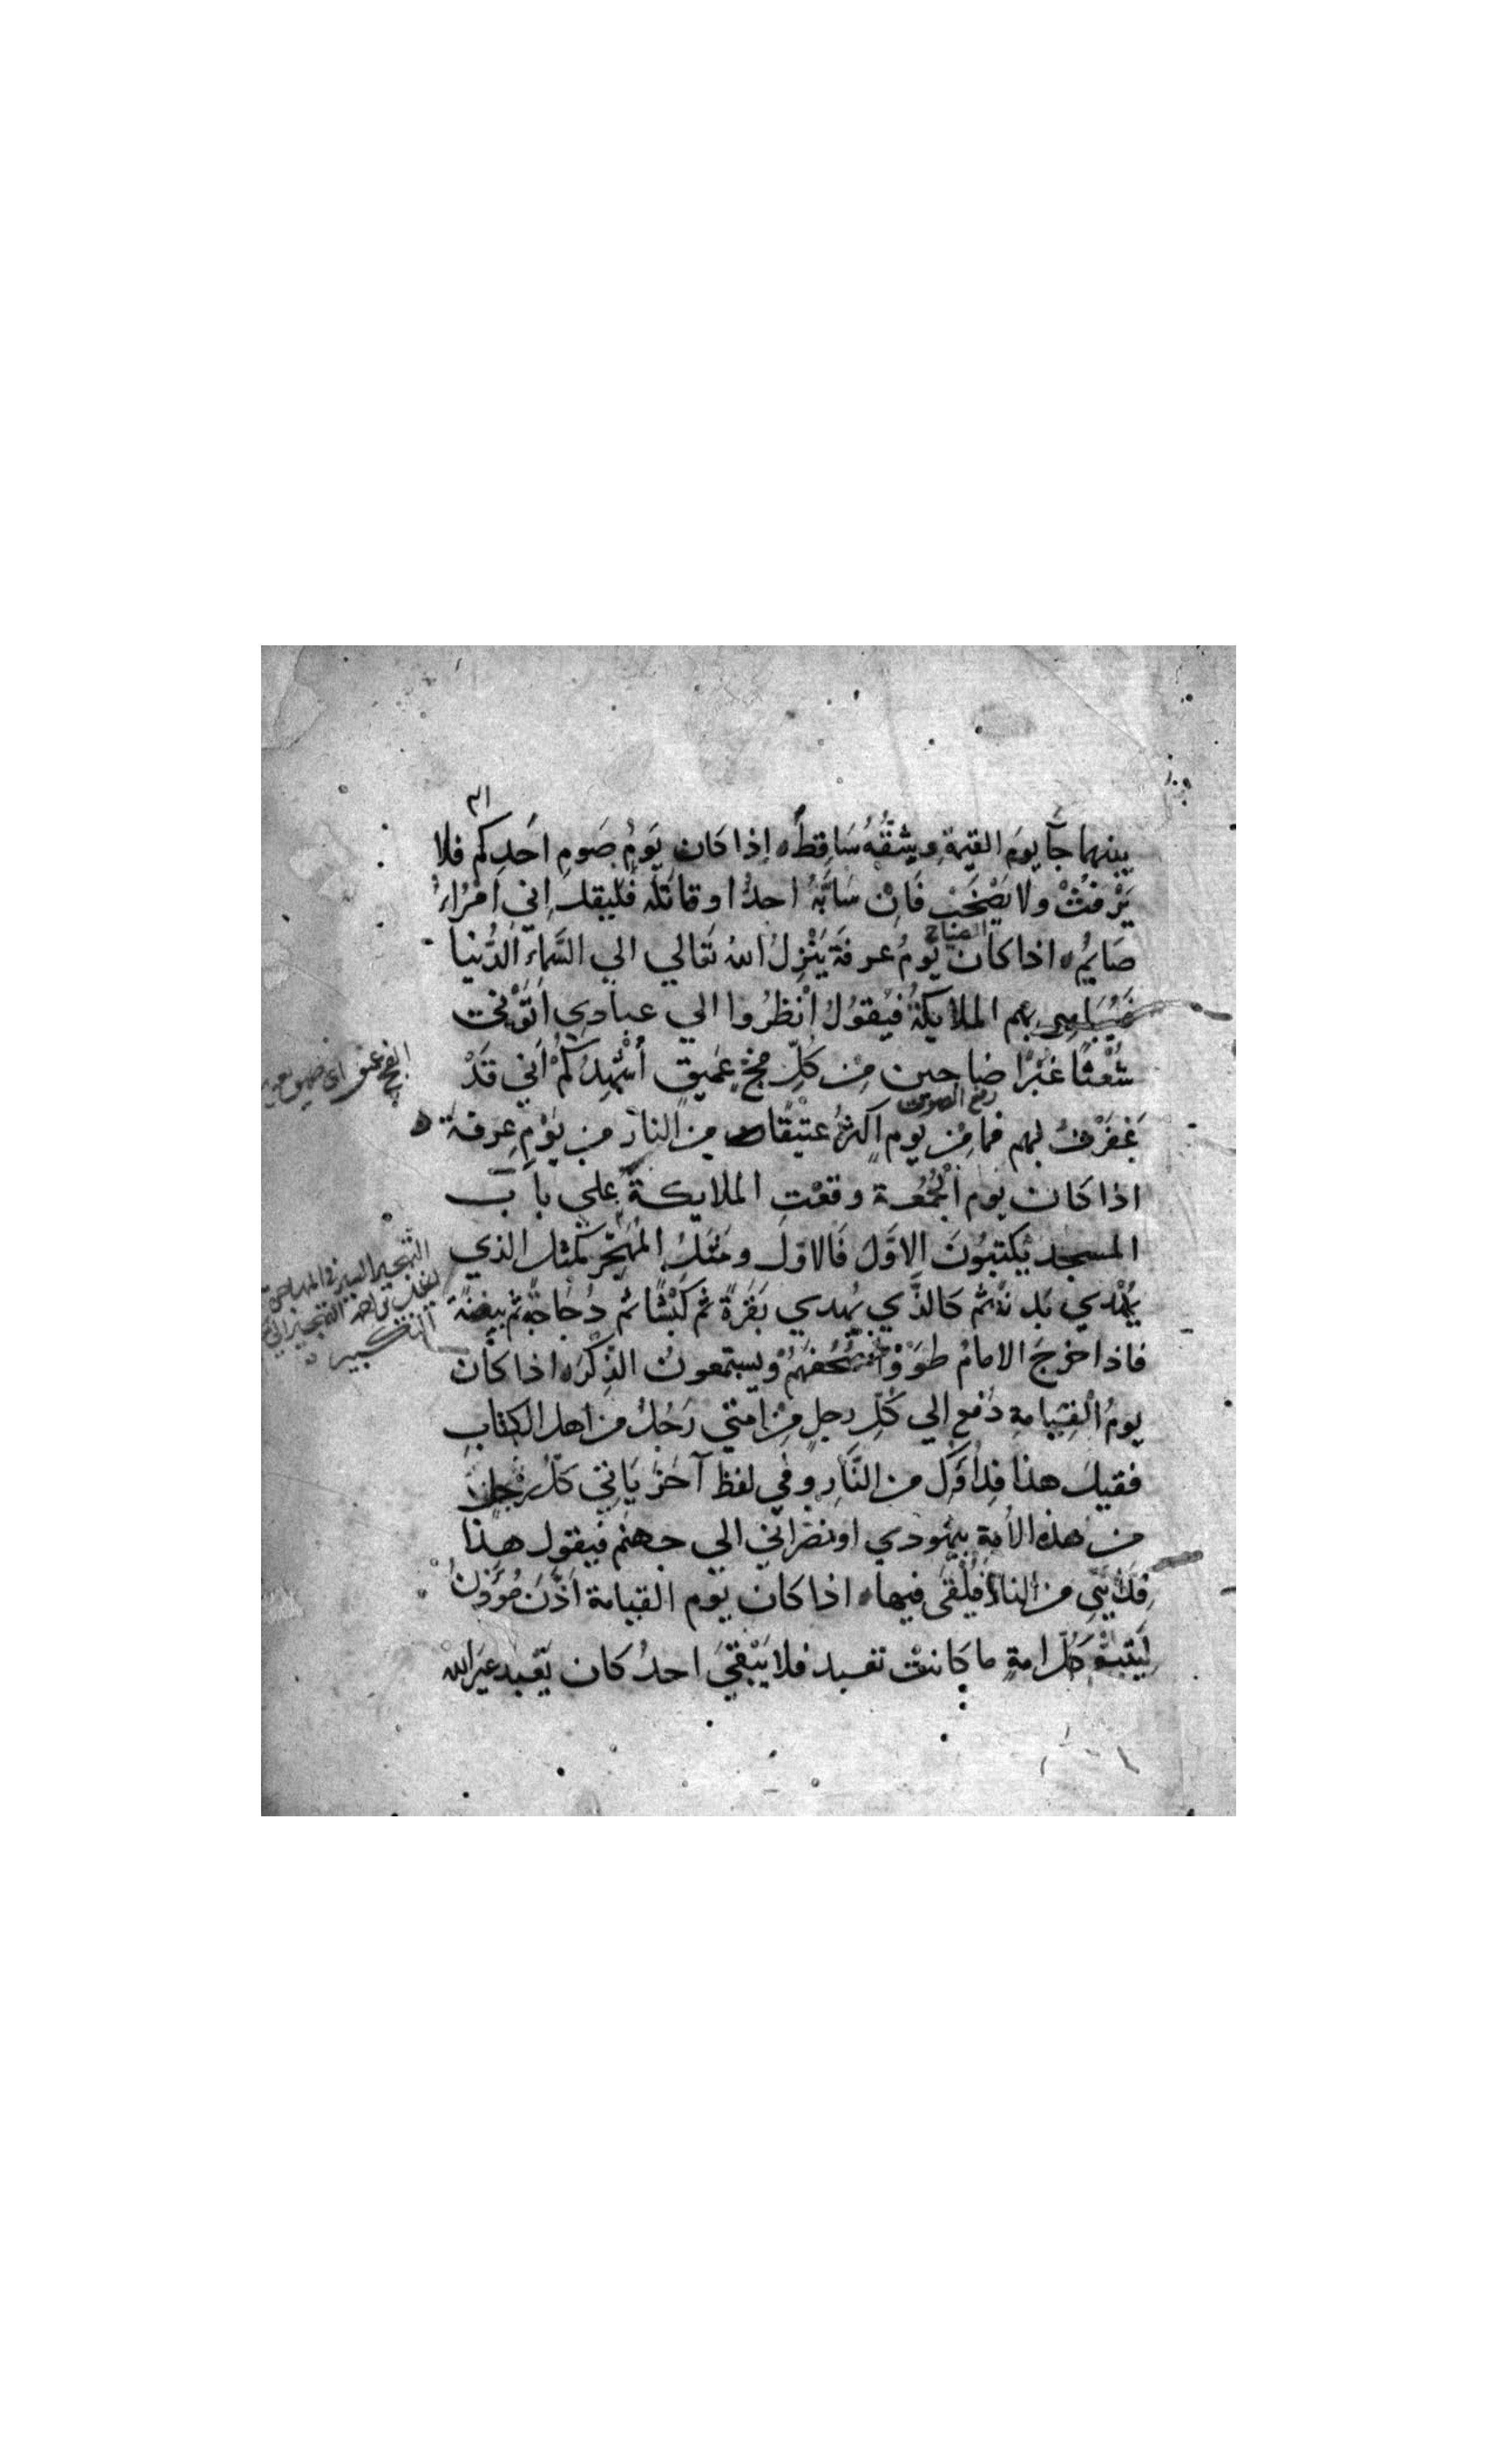 بينهما جآ يومَ القيمة وشقّهُ سَاقِطٌ ه اذا كان يَومُ صَومِ احَدِكم فلا
يَرْفُثْ ولا يَصْخَبْ فَاِنْ سَابَّهُ احدٌ او قاتله فليقل اِني امْرُاءٌ
الصياح
صَايمٌ ه اذا كان يومُ عرفةَ يَنْزِلُ اللهُ تعَالي الي السَّماءِ الدُّنيا
فيُبَاهي بهم الملايكة فيقولُ انْظرُوا الي عبادي اَتَوْني
شُعْثًا غُبْرًا ضاجين مِن كُلِّ فجٍّ عَميقٍ اُشْهِدُكُمْ اَني قَدْ
رفع الصوت
غَفَرْتُ لهم فما مِنْ يومٍ اكثرُ عتيقا من النار من يَوْمِ عرفةَ ه
اذا كان يوم الجُمُعة وقفتِ الملايكةُ على باب
المسجد يكتبُونَ الاوَّلَ فَالاوّلَ ومَثَلُ المُهَجِّرِ كمثل الذي
يُهْدي بَدنةً ثم كالذَّي يُهدي بَقَرةً ثم كَبْشًا ثم دُجَاجةً ثم بيضةً
فاذا خرَجَ الامامُ طوَوْا صُحُفَهُمْ ويستمعونَ الذِّكرَ ه اذا كان
يومُ الْقِيَامةِ دُفع الي كُلِّ رجلٍ مِنْ امتي رَجُلٌ من اهل الكتابِ
فقيل هذا فِداؤكَ من النَّارِ وفي لفظ آخَرَ يَاتي كلُّ رجلٍ
من هذه الاُمة بيَهُودي او نصْرَاني الي جهنم فيقول هذا
فِدَايِي من النار فيُلْقَى فيها ه اذا كان يَوم القيامة اَذَّنَ مُؤَذنٌ
لِيَتبعْ كلُّ امةٍ ما كَانتْ تعبد فلا يَبْقَي احدٌ كان يَعْبد غيرَ الله
الفج عميق اي
التهجير السير في
التبكير